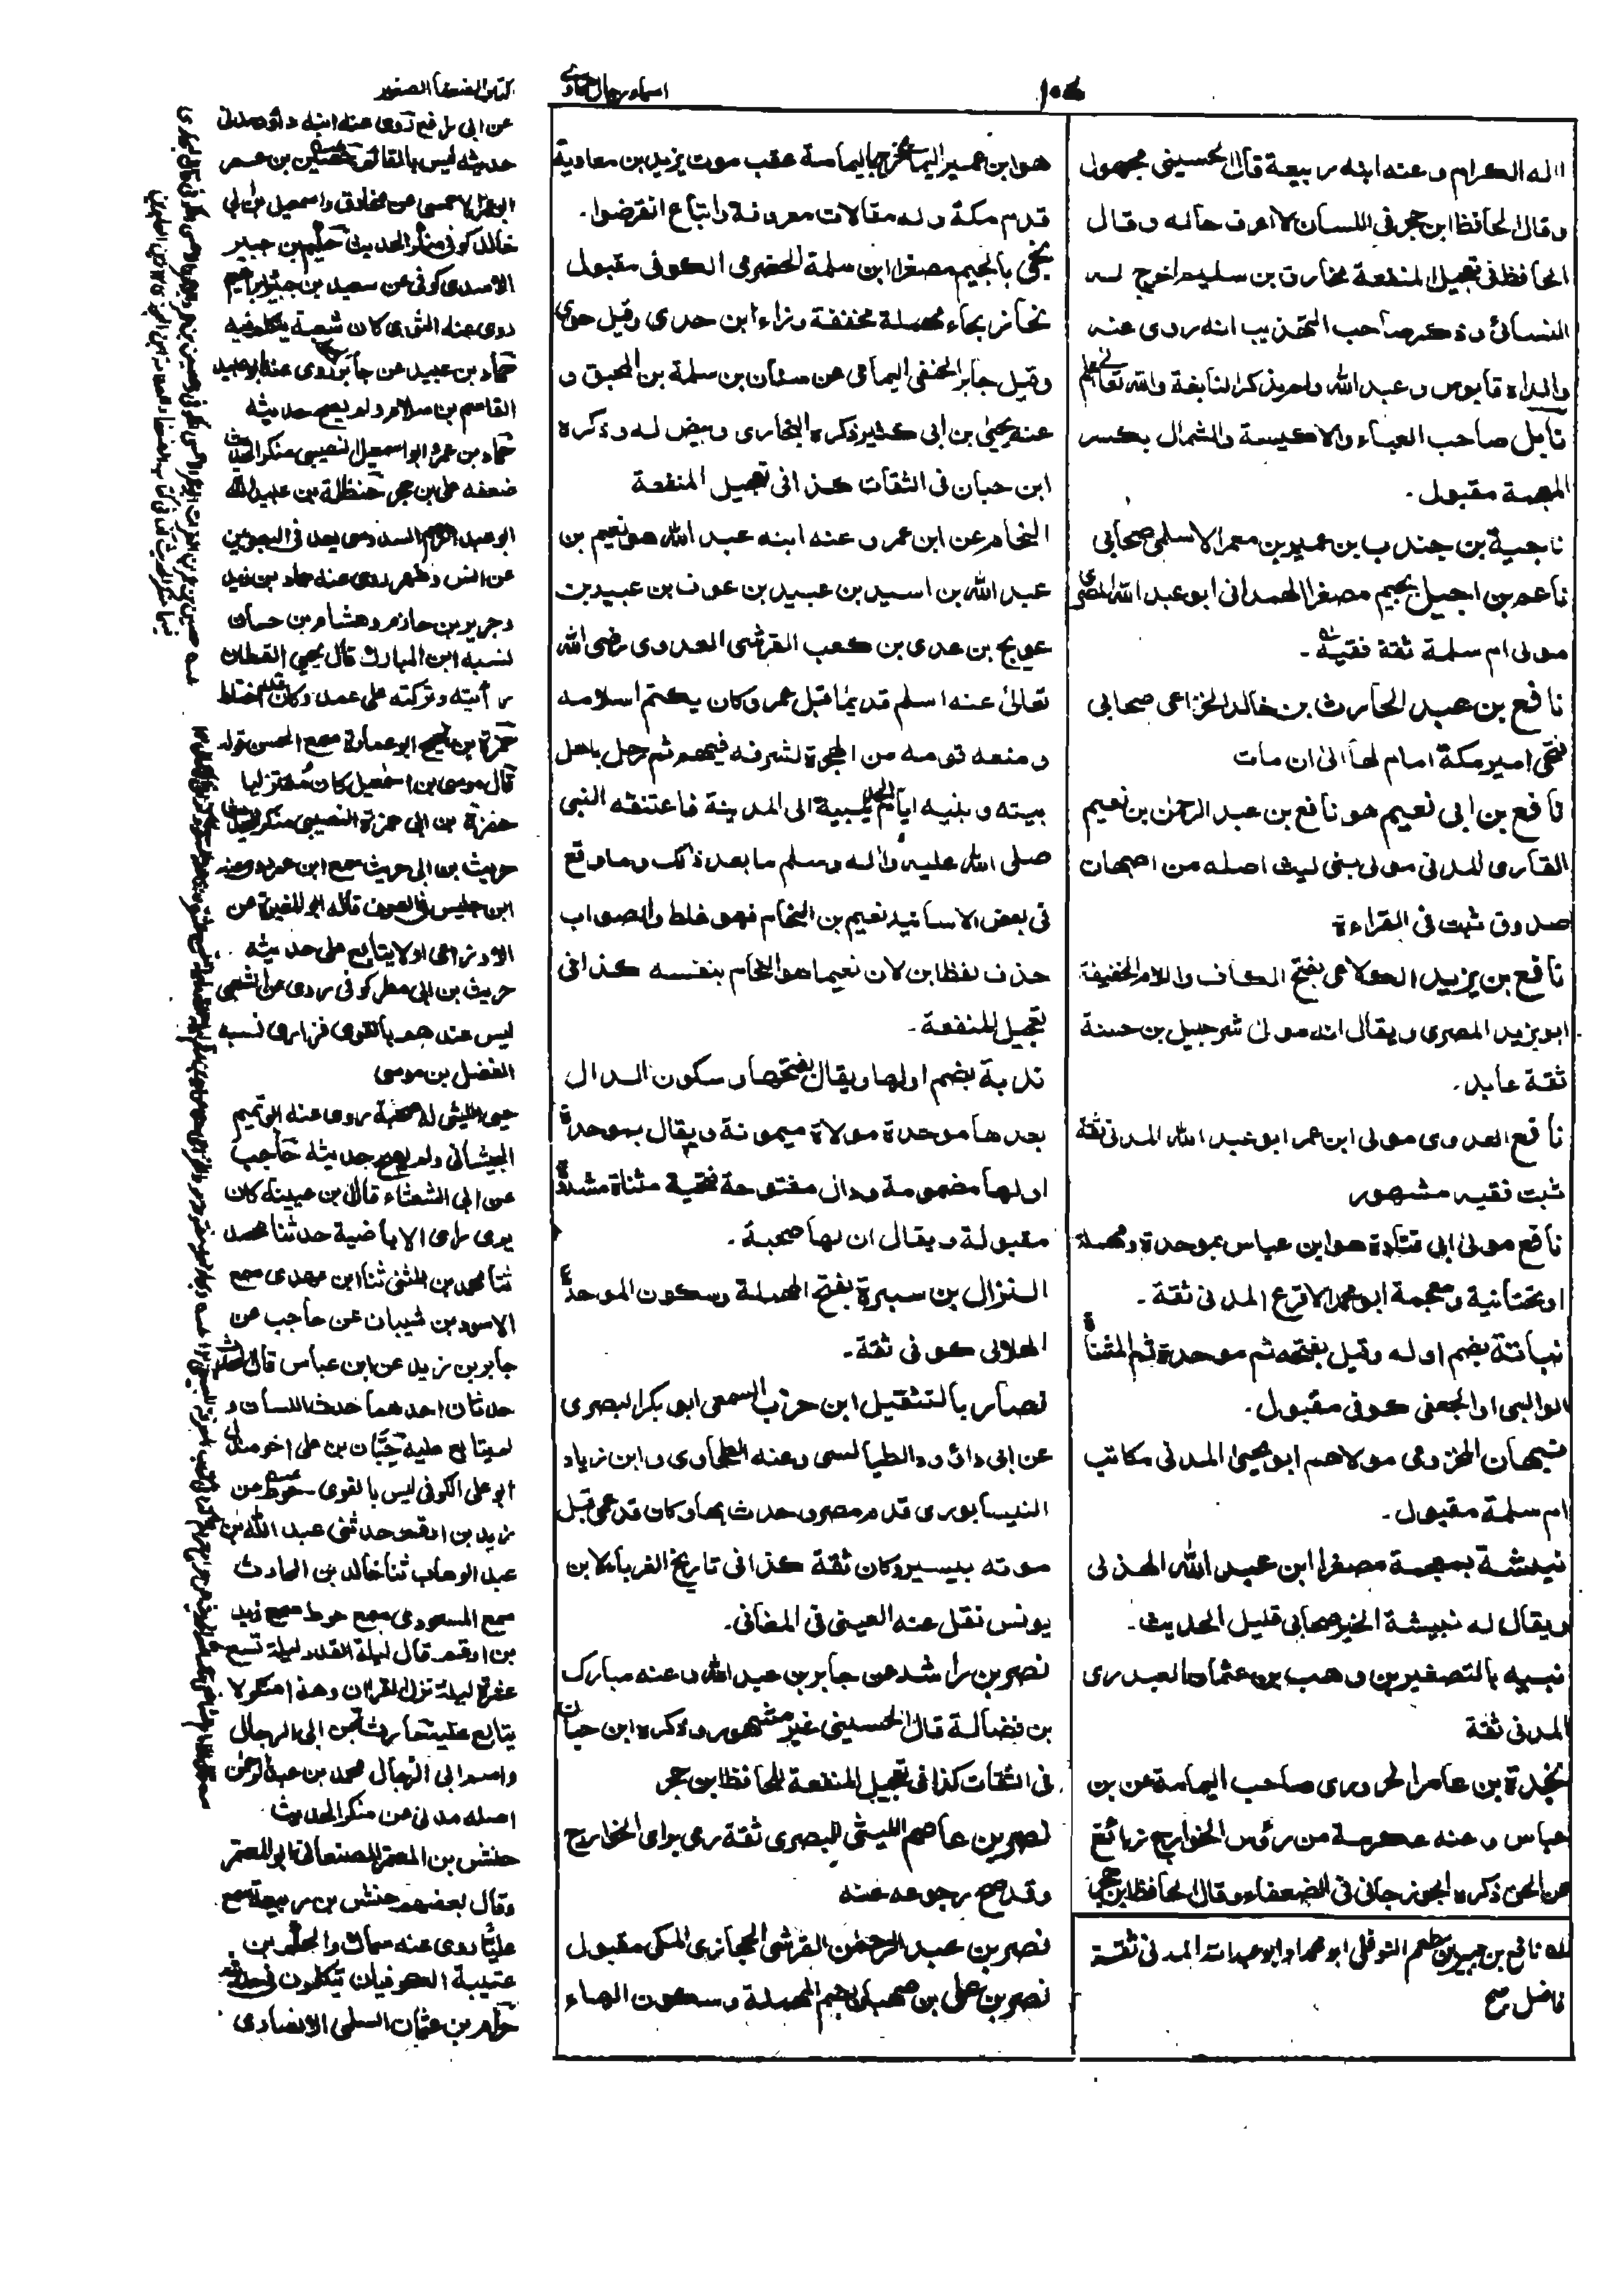 كتاب الضعفاء الصغير
اسماء رجال طحاوى
١٠٤
اله الكرام وعنه ابنه ربيعة قال الحسينى مجهول
وقال الحافظ ابن حجر فى اللسان لا اعرف حاله وقال
الحافظ فى تعجيل المنفعة مخارق بن سليم اخرج له
النسائى وذكر صاحب التهذيب انه روى عنه
والداه قابوس وعبد الله ولم يذكر النابغة والله تعالى اعلم
نابل صاحب العباء والاكيسة والشمال بكسر
المعجمة مقبول.
ناجية بن جندب بن عمير بن معمر الاسلمى صحابى
ناعم بن اجيل بجيم مصغرا الهمدانى ابو عبد الله المصرى
مولى ام سلمة ثقة فقيه.
نافع بن عبد الحارث بن خالد الخزاعى صحابى
فتحى امير مكة امام لها الى ان مات
نافع بن ابى نعيم هو نافع بن عبد الرحمن بن نعيم
القارى المدنى مولى بنى ليث اصله من اصبهان
صدوق ثبت فى القراءة
نافع بن يزيد الكلاعى بفتح الكاف واللام الخفيفة
ابو يزيد المصرى ويقال انه مولى شرحبيل بن حسنة
ثقة عابد.
نافع العدوى مولى ابن عمر ابو عبد الله المدنى ثقة
ثبت فقيه مشهور
نافع مولى ابى قتادة هو ابن عباس بموحدة ومهملة
او تحتانية ومعجمة ابو محمد الاقرع المدنى ثقة.
نباتة بضم اوله وقيل بفتحه ثم موحدة ثم المثناة
الوالبى او الجعفى كوفى مقبول.
نبهان المخزومى مولاهم ابو يحيى المدنى مكاتب
ام سلمة مقبول.
نبيشة بمعجمة مصغرا ابن عبد الله الهذلى
ويقال له نبيشة الخير صحابى قليل الحديث.
نبيه بالتصغير بن وهب بن عثمان العبدرى
المدنى ثقة
نجدة بن عامر الحرورى صاحب اليمامة عن بن
عباس وعنه عكرمة من رؤس الخوارج زائغ
عن الحق ذكره الجوزجانى فى الضعفاء وقال الحافظ ابن حجر
له نافع بن جبير بن مطعم النوفلى ابو محمد او ابو عبد الله المدنى ثقة
فاضل
هو ابن عمير اليمامى خرج باليمامة عقب موت يزيد بن معاوية
قدم مكة وله مقالات معروفة واتباع انقرضوا.
نجى بالجيم مصغرا ابن سلمة الحضرمى الكوفى مقبول
نحاز بحاء مهملة مخففة وزاء ابن حدى وقيل حوى
وقيل جابر الحنفى اليمامى عن سنان بن سلمة بن المحبق و
عنه يحيى بن ابى كثير ذكره البخارى وبيض له وذكره
ابن حبان فى الثقات كذا فى تعجيل المنفعة
النحام عن ابن عمر وعنه ابنه عبد الله هو نعيم بن
عبد الله بن اسيد بن عبيد بن عوف بن عبيد بن
عويج بن عدى بن كعب القرشى العدوى رضى الله
تعالى عنه اسلم قديما قبل عمر وكان يكتم اسلامه
ومنعه قومه من الهجرة لشرفه فيهم ثم رحل باهل
بيته وبنيه ايام الحديبية الى المدينة فاعتنقه النبى
صلى الله عليه واله وسلم ما بعد ذلك وما وقع
فى بعض الاسانيد نعيم بن النحام فهو غلط والصواب
حذف لفظ ابن لان نعيما هو النحام بنفسه كذا فى
تعجيل المنفعة.
ندبة بضم اولها ويقال بفتحها وسكون الدال
بعدها موحدة مولاة ميمونة ويقال بموحدة
اولها مضمومة ودال مفتوحة تحتية مثناة مشددة
مقبولة ويقال ان لها صحبة.
النزال بن سبرة بفتح المهملة وسكون الموحدة
الهلالى كوفى ثقة.
نصار بالتثقيل ابن حرب السمعى ابو بكر البصرى
عن ابى داؤد والطيالسى وعنه الطحاوى وابن زياد
النيسابورى قدم مصر وحدث بها وكان قد عمى قبل
موته بيسير وكان ثقة كذا فى تاريخ الغرباء لابن
يونس نقل عنه العينى فى المغانى.
نصر بن راشد عن جابر بن عبد الله وعنه مبارك
بن فضالة قال الحسينى غير مشهور وذكره ابن حبان
فى الثقات كذا فى تعجيل المنفعة للحافظ ابن حجر
نصر بن عاصم الليثى البصرى ثقة رمى براى الخوارج
وقد صح رجوعه عنه
نصر بن عبد الرحمن القرشى الحجازى المكى مقبول
نصر بن على بن صهبان بضم المهملة وسكون الهاء
عن ابى رافع روى عنه ابنه داؤد مدنى
حديثه ليس بالقائم حصين بن عمر
ابو عمر الاحمسى عن مخارق واسمعيل بن ابى
خالد كوفى منكر الحديث حكيم بن جبير
الاسدى كوفى عن سعيد بن جبير وابراهيم
روى عنه الثورى كان شعبة يتكلم فيه
حماد بن عبيد عن جابر روى عنه ابو عبيد
القاسم بن سلام ولم يصح حديثه
حماد بن عمرو ابو اسمعيل النصيبى منكر الحديث
ضعفه على بن حجر حنظلة بن عبيد الله
ابو عبد الرحيم السدوسى يعد فى البصريين
عن انس وشهر روى عنه حماد بن زيد
وجرير بن حازم وهشام بن حسان
نسبه ابن المبارك قال يحيى القطان
رأيته وتركته على عمد وكان قد اختلط
حمزة بن نجيح ابو عمارة سمع الحسن قوله
قال موسى بن اسمعيل كان معتزليا
حمزة بن ابى حمزة النصيبى منكر الحديث
حريث بن ابى حريث سمع ابن عمر روى عنه
ابن حليس فى الصرف قاله ابو المغيرة عن
الاوزاعى ولا يتابع على حديثه
حريث بن ابى مطر كوفى روى عن الشعبى
ليس عندهم بالقوى فزارى نسبه
الفضل بن موسى
حيى الليثى له صحبة روى عنه ابو تميم
الجيشانى ولم يصح حديثه حاجب
عن ابى الشعثاء قال ابن عيينة كان
يرى راى الاباضية حدثنا محمد
ثنا محمد بن المثنى ثنا ابن مهدى سمع
الاسود بن شيبان عن حاجب عن
جابر بن زيد عن ابن عباس قال الحدث
حدثان احدهما حدث اللسان و
لم يتابع عليه حبان بن على اخو مندل
ابو على الكوفى ليس بالقوى حوط عن
زيد بن ارقم حدثنى عبد الله بن
عبد الوهاب ثنا خالد بن الحارث
سمع المسعودى سمع حوط سمع زيد
بن ارقم قال ليلة القدر ليلة تسع
عشرة ليلة نزل القرآن وهذا منكر لا
يتابع عليه حارثة بن ابى الرجال
واسم ابى الرجال محمد بن عبد الرحمن
اصله مدنى عن منكر الحديث
حنش بن المعتمر الصنعانى ابو المعتمر
وقال بعضهم حنش بن ربيعة سمع
عليا روى عنه سماك والحكم بن
عتيبة الكوفيان يتكلمون فى حديثه
حرام بن عثمان السلمى الانصارى